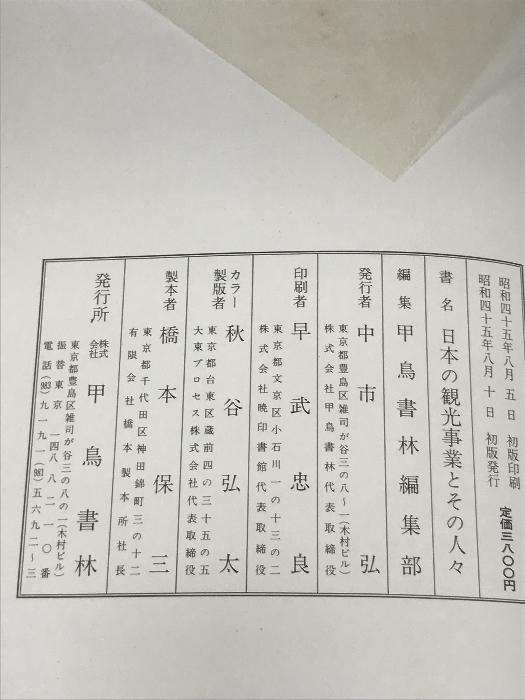 昭和四十五年八月五日 初版印刷
昭和四十五年八月十日 初版発行
定価三八〇〇円
書名 日本の観光事業とその人々
編集 甲鳥書林編集部
発行者 中市弘
東京都豊島区雑司が谷三の八〜一(木村ビル)
株式会社甲鳥書林代表取締役
印刷者 早武忠良
東京都文京区小石川一の十三の二
株式会社暁印書館代表取締役
カラー製版者 秋谷弘太
東京都台東区蔵前四の三十五の五
大東プロセス株式会社代表取締役
製本者 橋本保三
東京都千代田区神田錦町三の十二
有限会社橋本製本所社長
発行所 株式会社 甲鳥書林
東京都豊島区雑司が谷三の八の一(木村ビル)
振替東京一四八八二一〇番
電話(983)九一九一(981)五六九二〜三